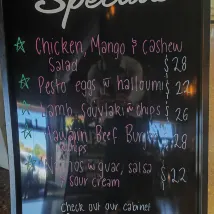 Specials
Chicken, Mango & Cashew
Salad $28
Pesto eggs w halloumi $22
Lamb Souvlaki w chips $26
Beef Burger $28
chips
w guac, salsa
sour cream $22
check out our cabinet